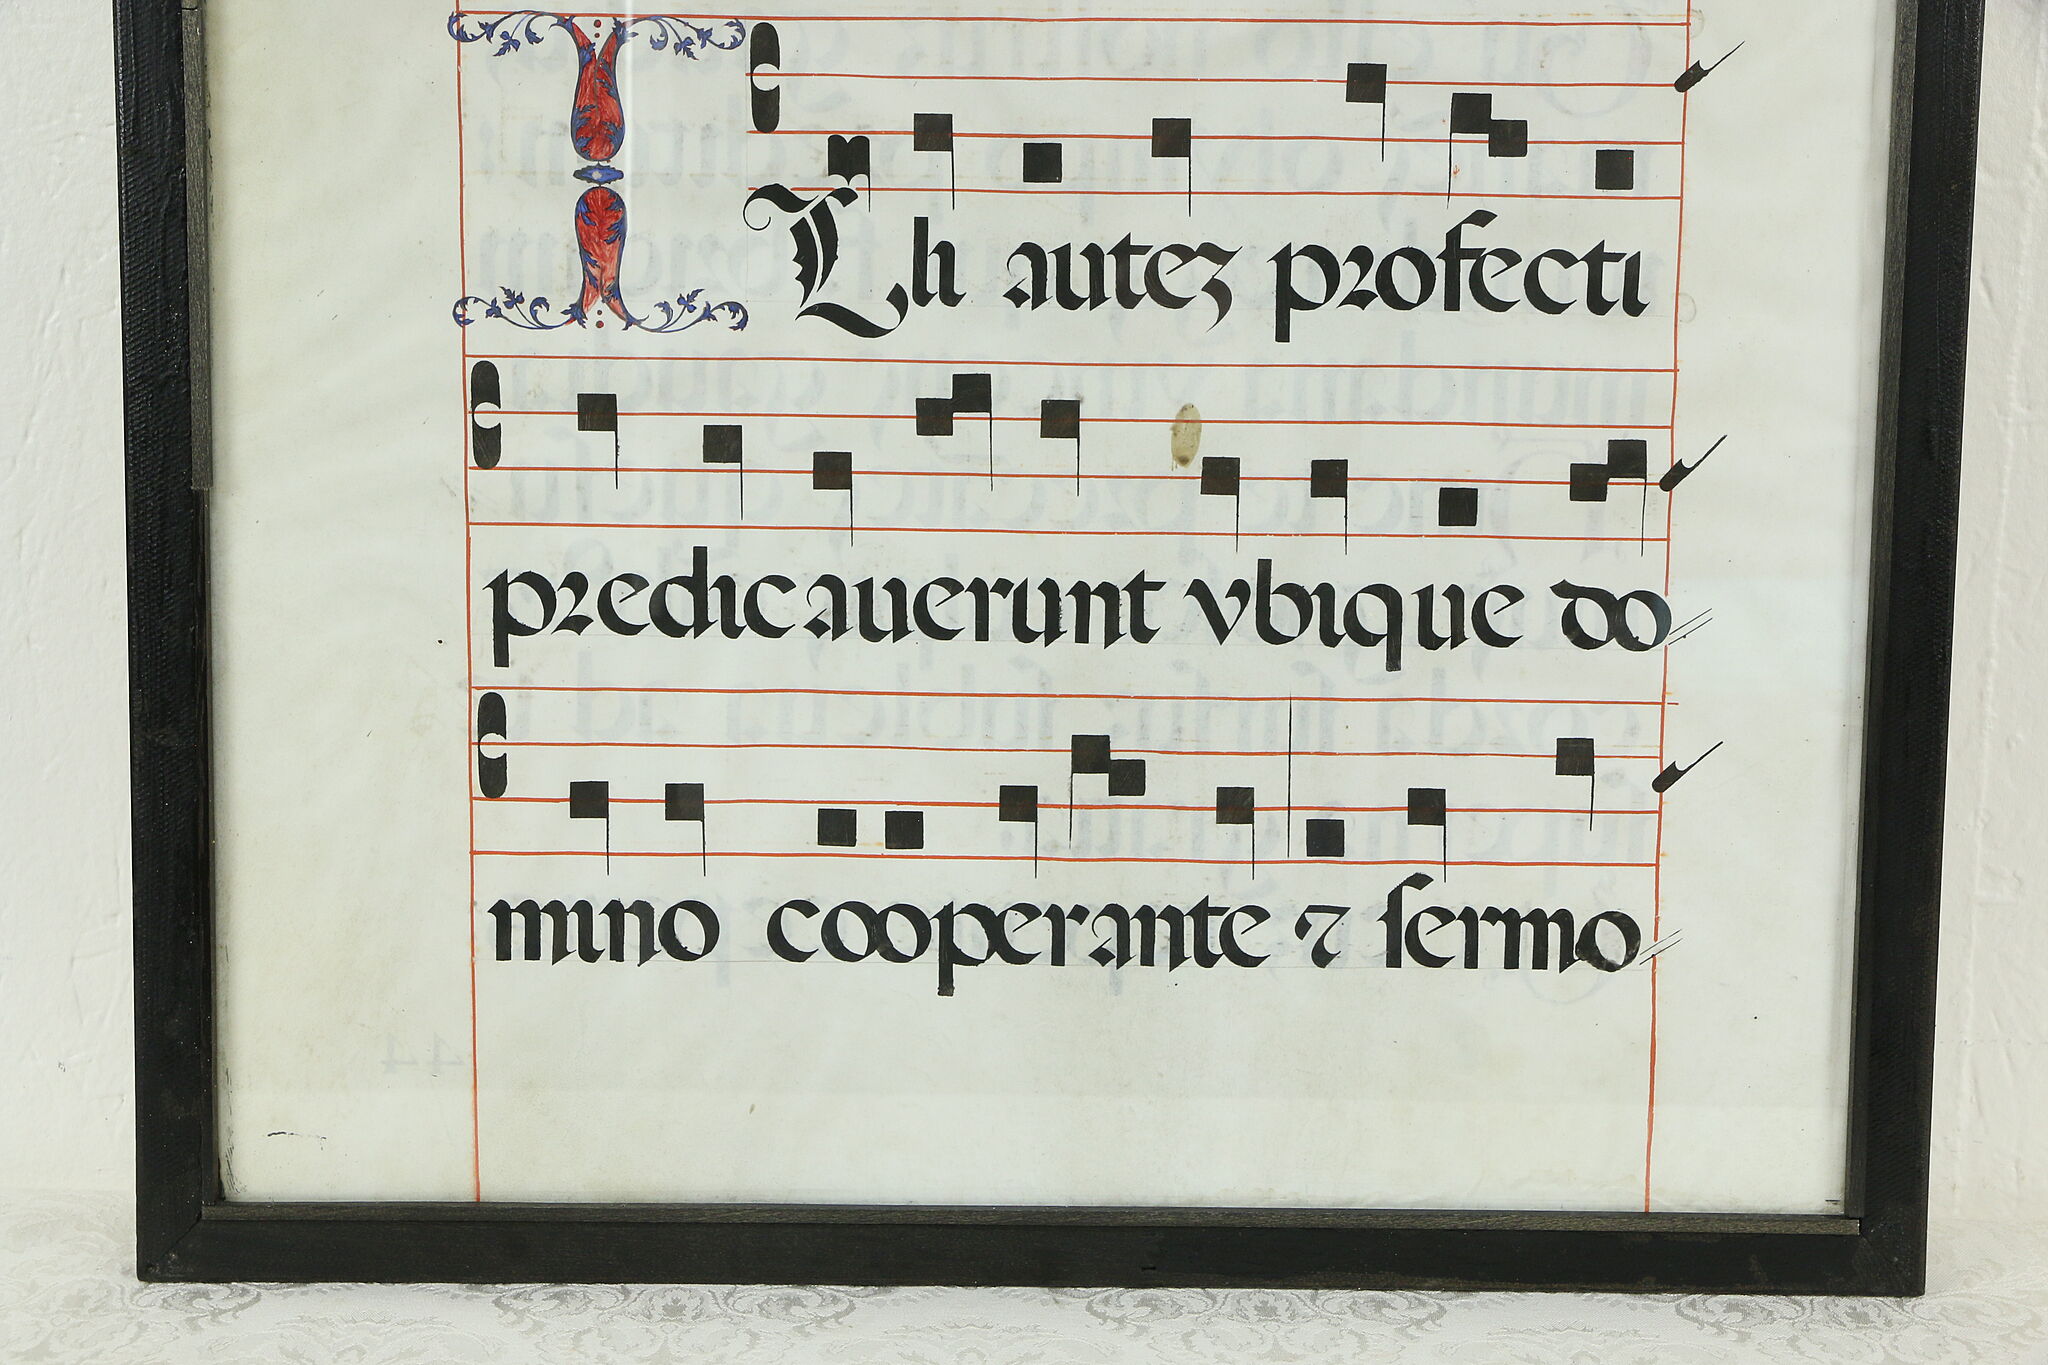 ILli autez profecti
predicauerunt vbique do//
mino cooperante ⁊ sermo//